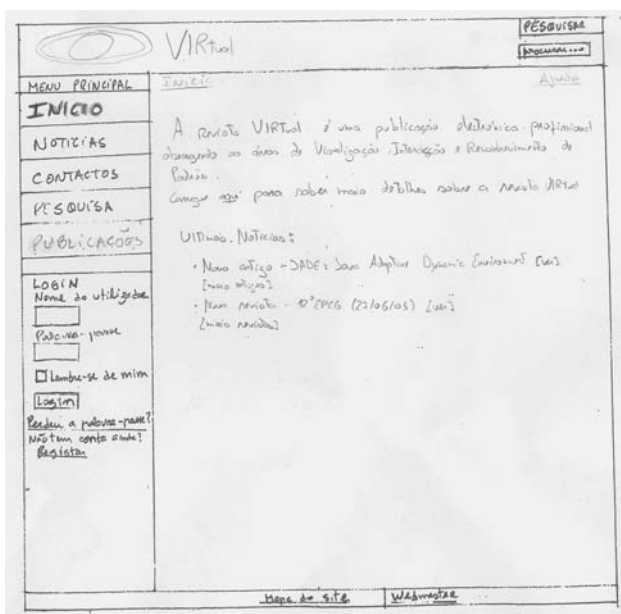 VIRtual
PESQUISAR
procurar...
MENU PRINCIPAL
INICIO
NOTICIAS
CONTACTOS
PESQUISA
PUBLICAÇÕES
LOGIN
Nome do utilizador
Palavra-passe
Lembre-se de mim
Login
Perdeu a palavra-passe?
Não tem conta ainda?
Registar
Inicio
Ajuda
A revista VIRtual é uma publicação electrónica profissional
abrangendo as áreas de Visualização, Interacção e Reconhecimento de
Padrões.
Carregue aqui para saber mais detalhes sobre a revista VIRtual
Ultimas Noticias:
• Novo artigo - JADE: Java Adaptive Dynamic Environment [ver]
[mais artigos]
• Nova revista - (23/06/05) [ver]
[mais revistas]
Mapa do site
Webmaster